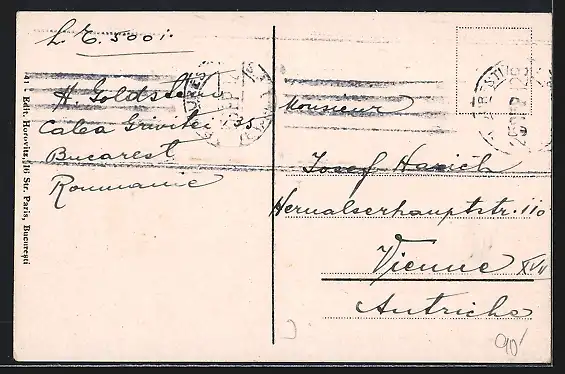 L. E. 5001.
H. Goldstein
Calea Grivitei 135
Bucarest
Roumanie
Edit. Horovitz, 16 Str. Paris, București
Monsieur
Josef Harich
Hernalserhauptstr. 110
Vienne XVII
Autriche
90'